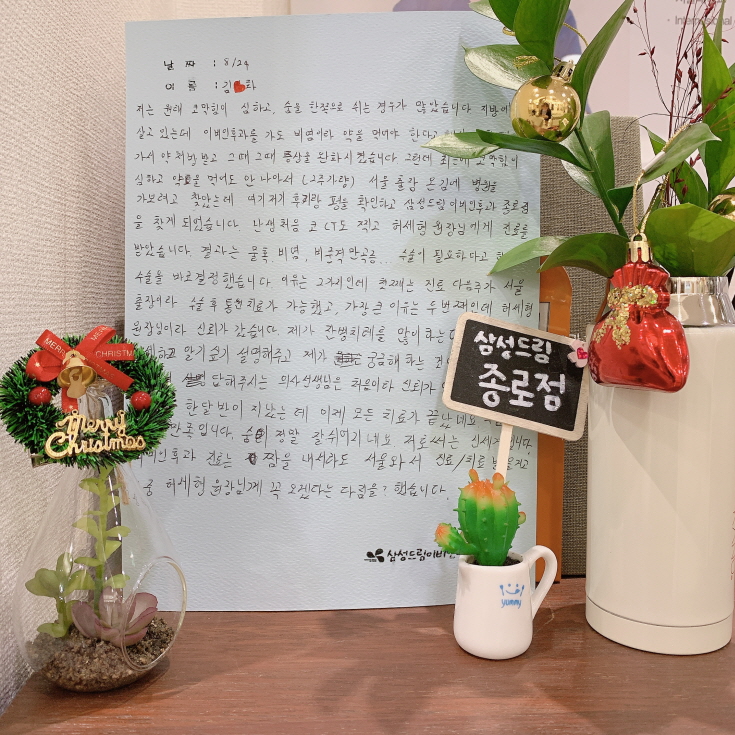 날짜 : 8/24
이름 : 김 라
저는 원래 코막힘이 심하고, 숨을 한쪽으로 쉬는 경우가 많았습니다. 지방에
살고 있는데 이비인후과를 가도 비염이라 약을 먹어야 한다고
가서 약 처방 받고 그때 그때 증상을 완화시켰습니다. 그런데 최근에 코막힘이
심하고 약을 먹어도 안 나아서 (2주가량) 서울 출장 온김에 병원을
가보려고 찾았는데 여기저기 후기랑 평을 확인하고 삼성드림이비인후과 종로점
을 찾게 되었습니다. 난생처음 코 CT도 찍고 허세형 원장님께 진료를
받았습니다. 결과는 물혹, 비염, 비중격만곡증... 수술이 필요하다고
수술을 바로 결정했습니다. 이유는 2가지인데 첫째는 진료 다음주가 서울
출장이라 수술 후 통원치료가 가능했고, 가장 큰 이유는 두번째인데 허세형
원장님이라 신뢰가 갔습니다. 제가 잔병치레를 많이 하는
하고 알기쉽게 설명해주고 제가 궁금해 하는
답해주시는 의사선생님은 처음이라 신뢰가
한달 반이 지났는데 이제 모든 치료가 끝났네요
만족입니다. 숨이 정말 잘 쉬어지네요. 저로써는 신세계입니다.
이비인후과 진료는 짬을 내서라도 서울와서 진료/치료
허세형 원장님께 꼭 오겠다는 다짐을? 했습니다.
삼성드림이비인
MERRY CHRISTMAS
Merry
Christmas
삼성드림
종로점
yummy
International